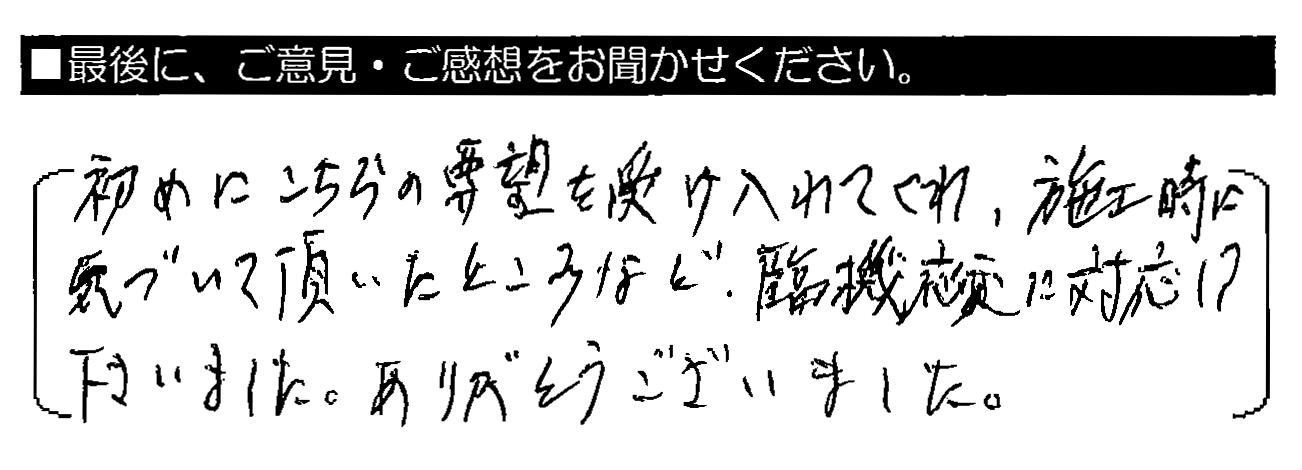 ■最後に、ご意見・ご感想をお聞かせください。
初めにこちらの要望を受け入れてくれ、施工時に
気づいて頂いたところなど、臨機応変に対応して
下さいました。ありがとうございました。